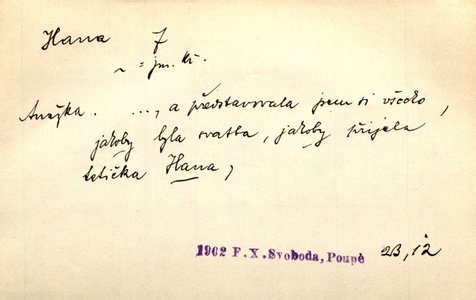 Hana f
~ = jm. kř.
Anežka. ..., a představovala jsem si všecko,
jakoby byla svatba, jakoby přijela
tetička Hana,
1902 F. X. Svoboda, Poupě 2B, 12